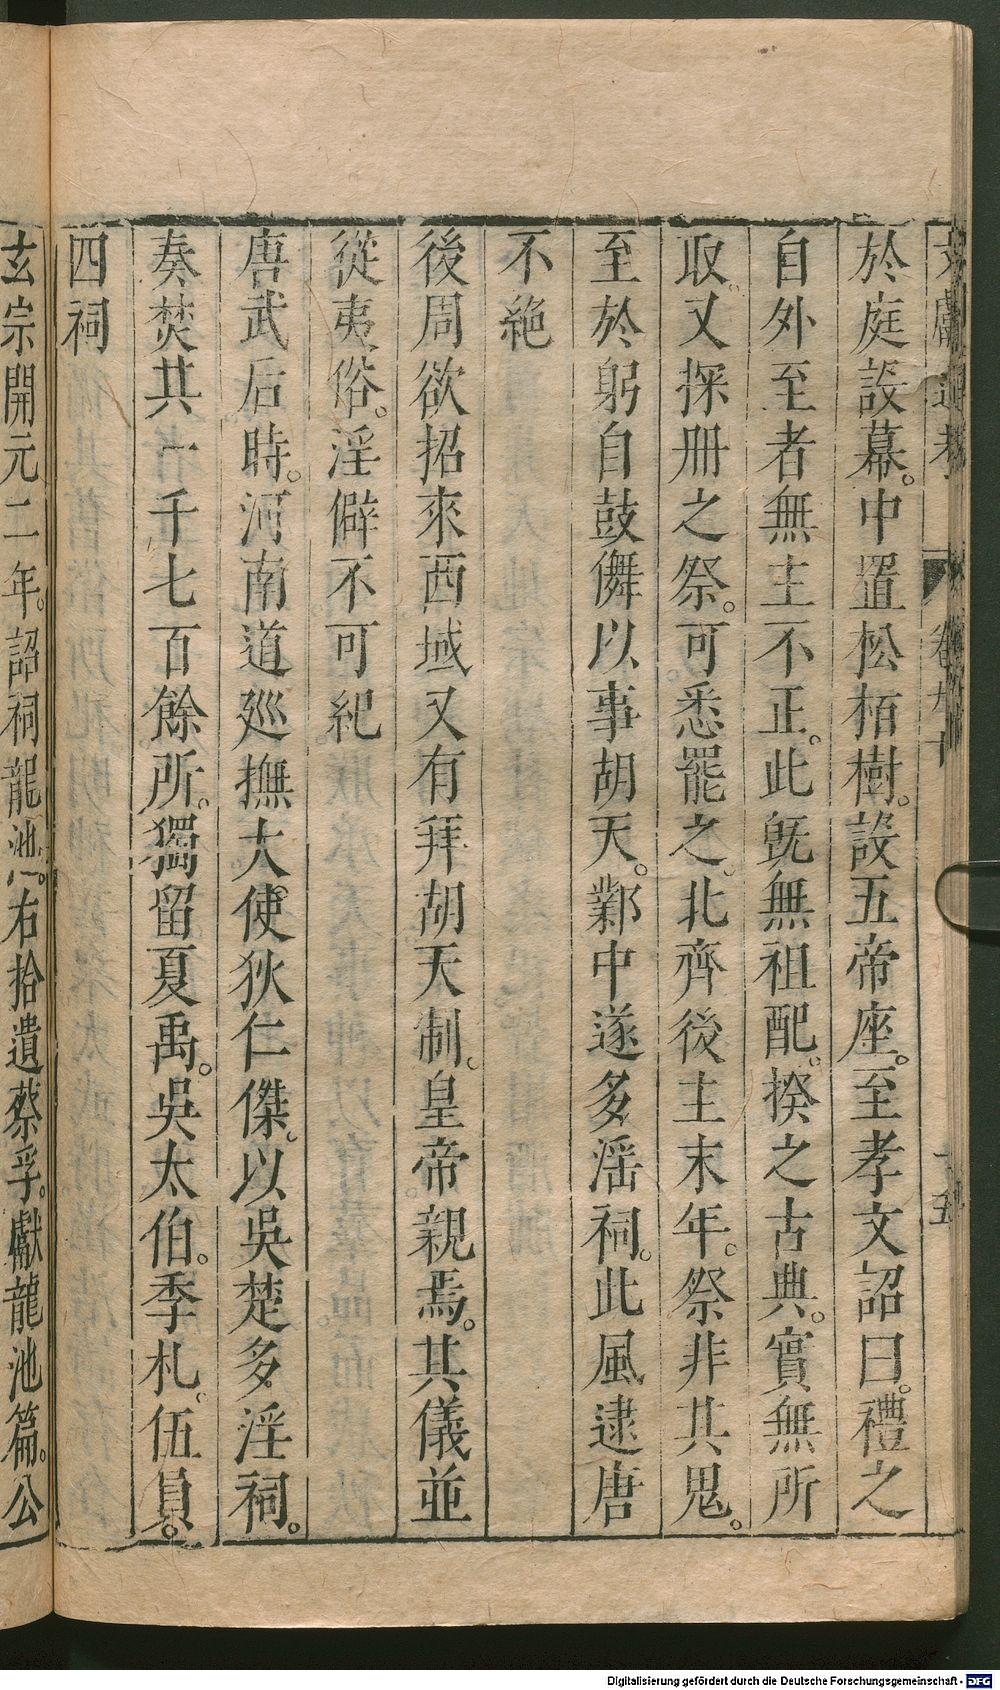 文獻通考 卷九十 十五
於庭設幕。中置松栢樹。設五帝座。至孝文詔曰。禮之
自外至者無主不正。此旣無祖配。揆之古典。實無所
取。又探冊之祭。可悉罷之。北齊後主末年。祭非其鬼。
至於躬自鼓儛以事胡天。鄴中遂多淫祠。此風逮唐
不絶
後周欲招來西域又有拜胡天制。皇帝親焉。其儀並
從夷俗。淫僻不可紀
唐武后時。河南道廵撫大使狄仁傑。以吳楚多淫祠。
奏焚其一千七百餘所。獨留夏禹。吳太伯。季札。伍員。
四祠
玄宗開元二年。詔祠龍池。右拾遺蔡孚。獻龍池篇。公
Digitalisierung gefördert durch die Deutsche Forschungsgemeinschaft - DFG